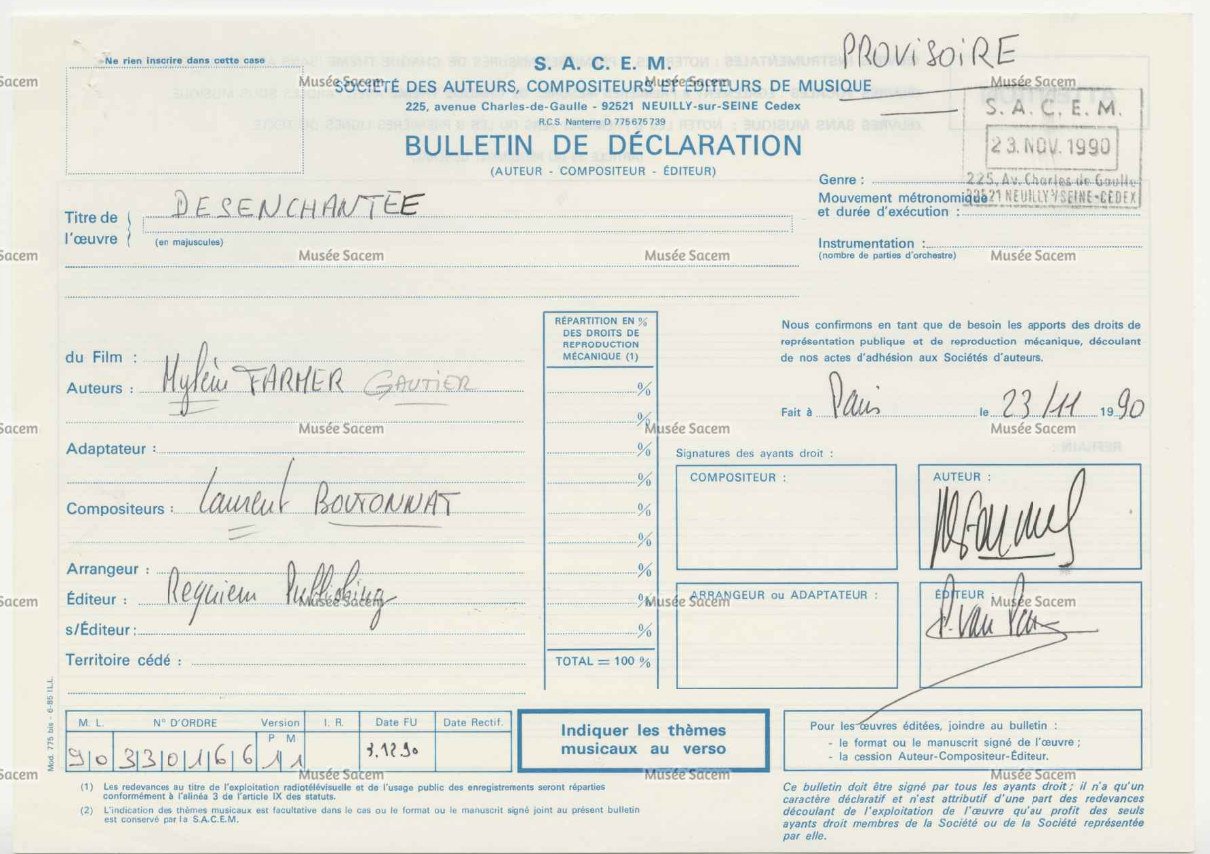 PROVISOIRE
Ne rien inscrire dans cette case
S. A. C. E. M.
SOCIÉTÉ DES AUTEURS, COMPOSITEURS ET ÉDITEURS DE MUSIQUE
225, avenue Charles-de-Gaulle - 92521 NEUILLY-sur-SEINE Cedex
R.C.S. Nanterre D 775 675 739
BULLETIN DE DÉCLARATION
(AUTEUR - COMPOSITEUR - ÉDITEUR)
S. A. C. E. M.
23. NOV. 1990
225, Av. Charles de Gaulle
92521 NEUILLY S/SEINE-CEDEX
Genre :
Mouvement métronomique
et durée d'exécution :
Instrumentation :
(nombre de parties d'orchestre)
Titre de l'œuvre
DESENCHANTEE
(en majuscules)
Musée Sacem
RÉPARTITION EN %
DES DROITS DE
REPRODUCTION
MÉCANIQUE (1)
du Film :
Auteurs : Mylène FARMER GAUTIER %
%
Adaptateur : %
%
Compositeurs : Laurent BOUTONNAT %
%
Arrangeur : %
Éditeur : Requiem Publishing %
s/Éditeur : %
Territoire cédé : TOTAL = 100 %
Nous confirmons en tant que de besoin les apports des droits de
représentation publique et de reproduction mécanique, découlant
de nos actes d'adhésion aux Sociétés d'auteurs.
Fait à Paris le 23/11 1990
Signatures des ayants droit :
COMPOSITEUR :
AUTEUR :
ARRANGEUR ou ADAPTATEUR :
ÉDITEUR :
M. L. N° D'ORDRE Version I. R. Date FU Date Rectif.
P M
90 330166 11 3.12.90
Indiquer les thèmes
musicaux au verso
Pour les œuvres éditées, joindre au bulletin :
- le format ou le manuscrit signé de l'œuvre ;
- la cession Auteur-Compositeur-Éditeur.
(1) Les redevances au titre de l'exploitation radiotélévisuelle et de l'usage public des enregistrements seront réparties
conformément à l'alinéa 3 de l'article IX des statuts.
(2) L'indication des thèmes musicaux est facultative dans le cas ou le format ou le manuscrit signé joint au présent bulletin
est conservé par la S.A.C.E.M.
Ce bulletin doit être signé par tous les ayants droit ; il n'a qu'un
caractère déclaratif et n'est attributif d'une part des redevances
découlant de l'exploitation de l'œuvre qu'au profit des seuls
ayants droit membres de la Société ou de la Société représentée
par elle.
Mod. 775 bis - 6-85 I.L.L.